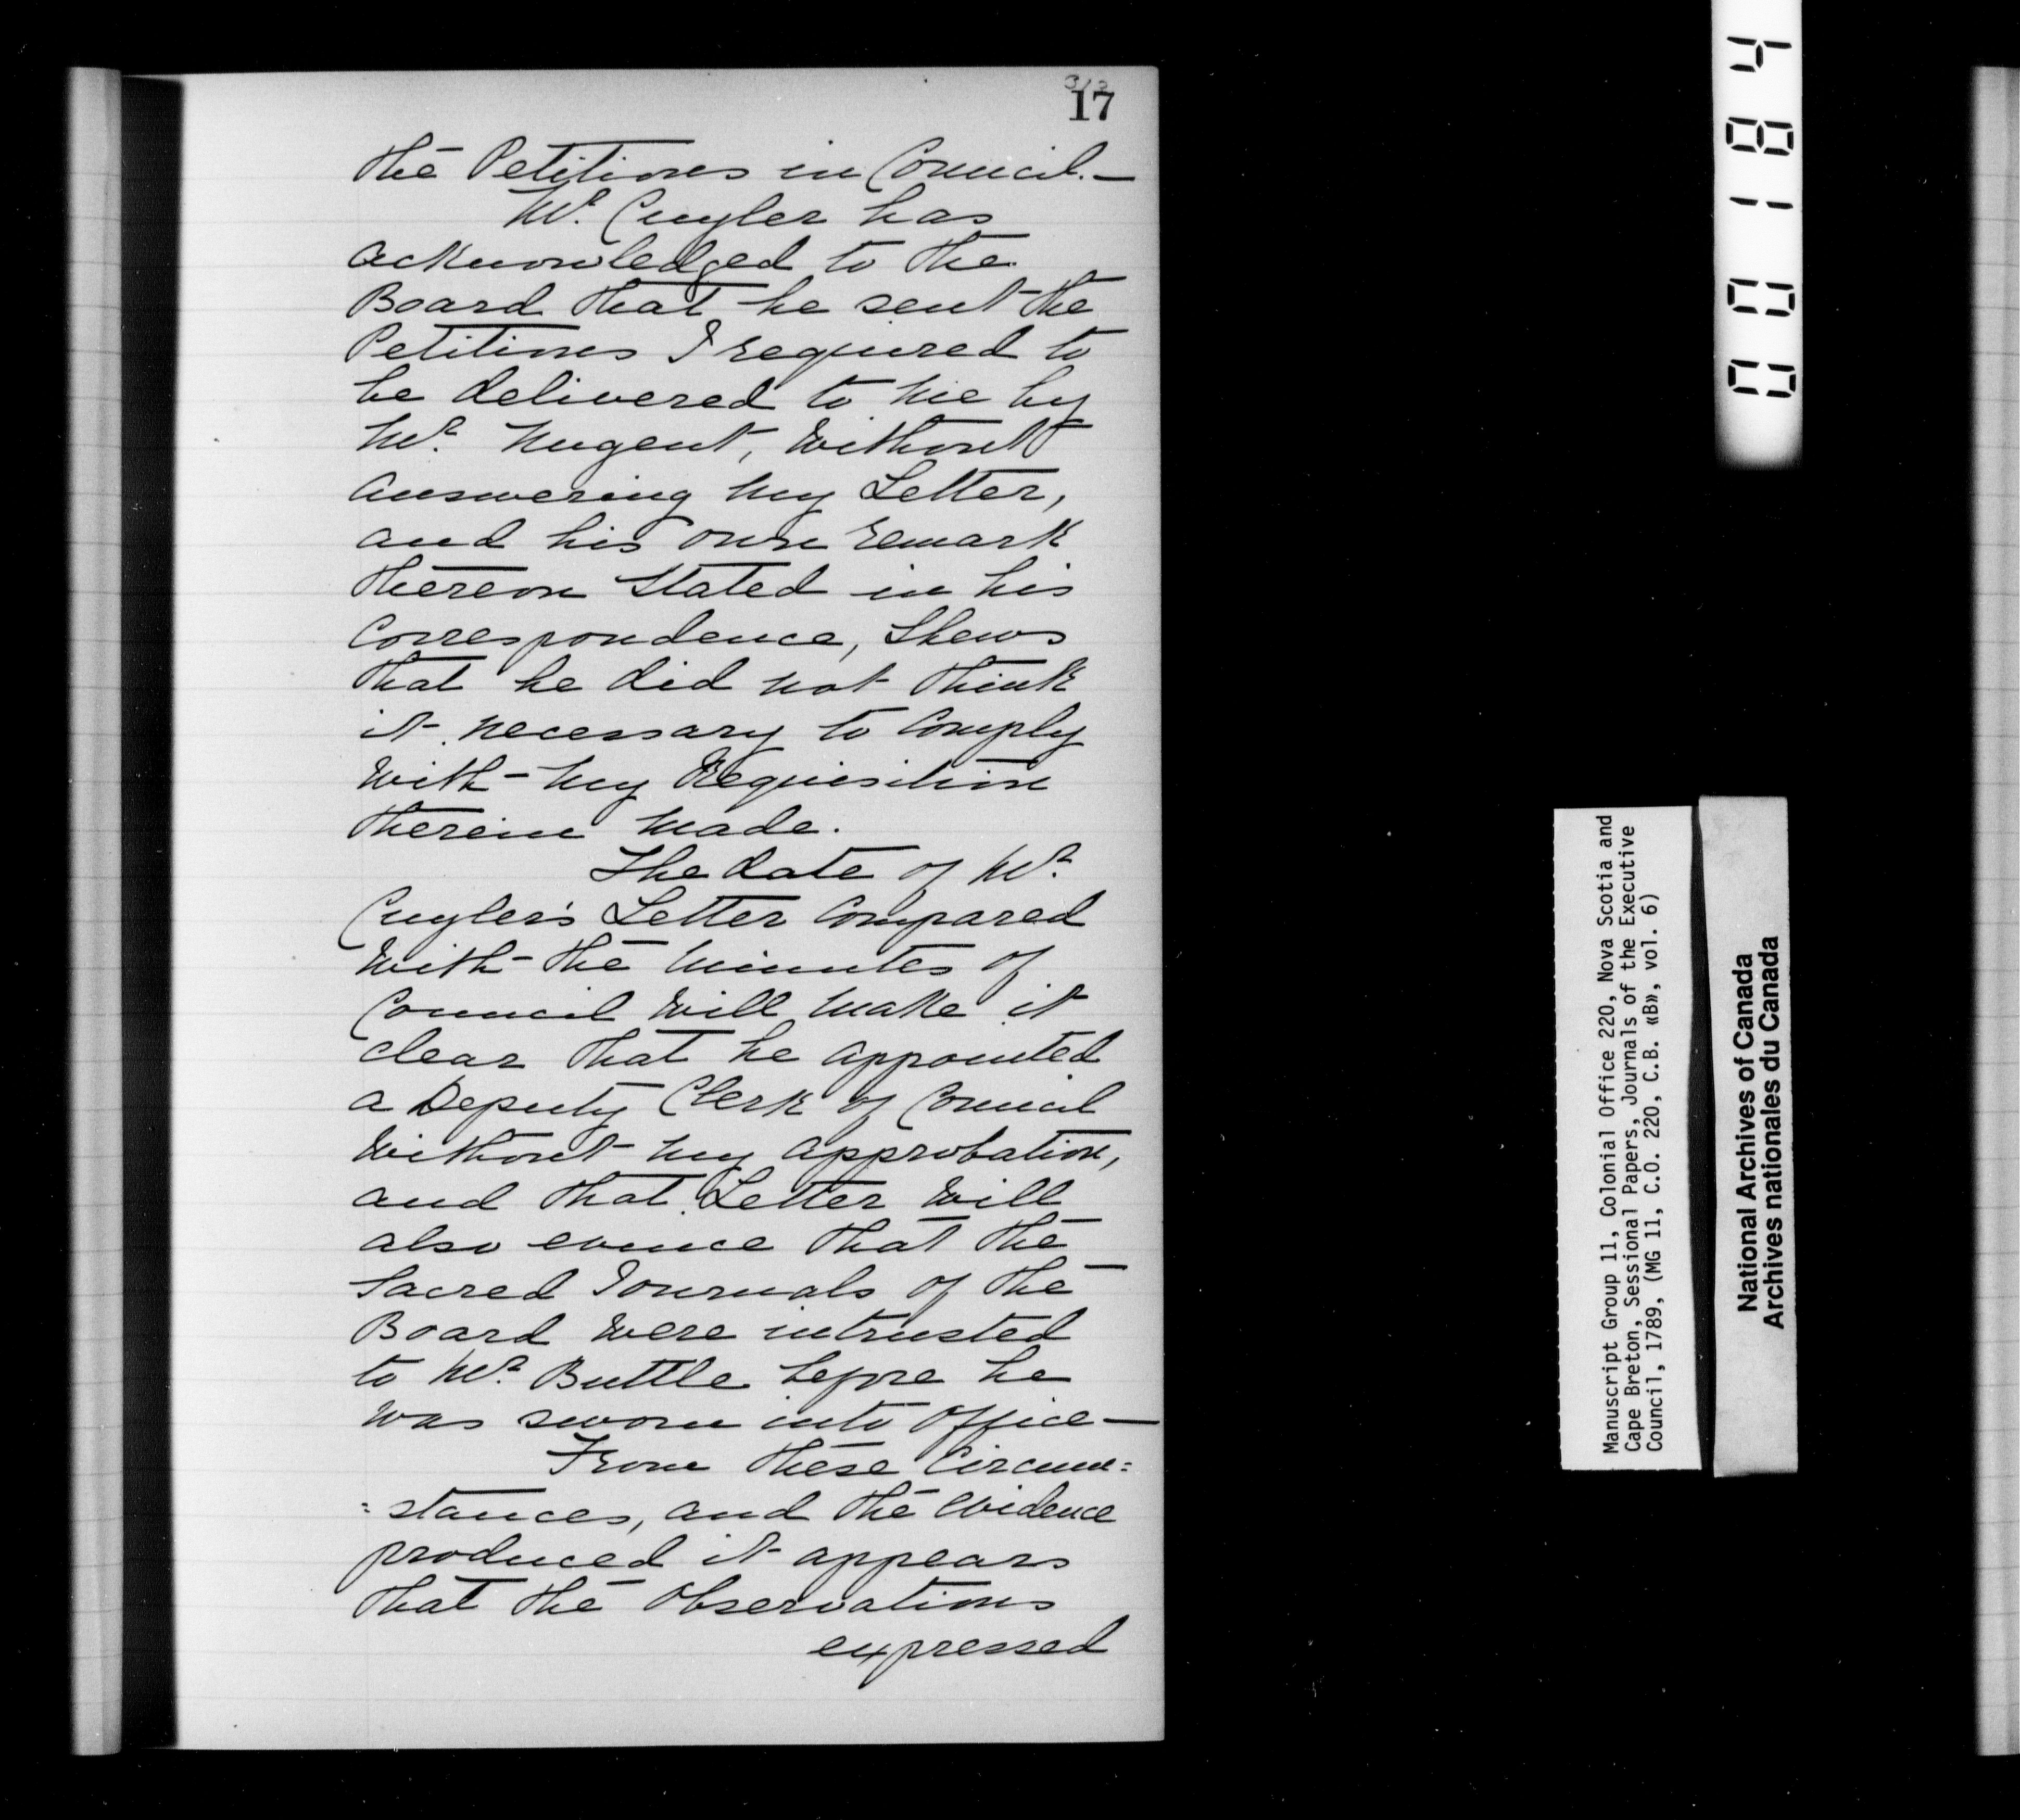 17
the Petitions in Council.—
Mr. Cuyler has
acknowledged to the
Board that he sent the
Petitions I required to
be delivered to me by
Mr. Nugent, Without
answering my Letter,
and his own remark
thereon stated in his
Correspondence, Shews
that he did not think
it necessary to Comply
With my Requisition
therein made.
The date of Mr.
Cuyler's Letter Compared
With the Minutes of
Council Will make it
clear that he appointed
a Deputy Clerk of Council
Without my approbation,
and that Letter Will
also evince that the
Sacred Journals of the
Board Were intrusted
to Mr. Buttle before he
was sworn into Office—
From these Circum=
=stances, and the Evidence
produced it appears
that the Observations
expressed
00184
Manuscript Group 11, Colonial Office 220, Nova Scotia and
Cape Breton, Sessional Papers, Journals of the Executive
Council, 1789, (MG 11, C.O. 220, C.B. «B», vol. 6)
National Archives of Canada
Archives nationales du Canada